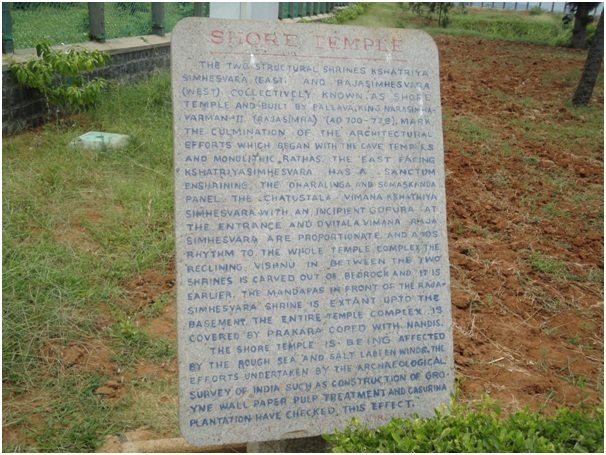 SHORE TEMPLE
THE TWO STRUCTURAL SHRINES KSHATRIYA
SIMHESVARA (EAST) AND RAJASIMHESVARA
(WEST) COLLECTIVELY KNOWN AS SHORE
TEMPLE AND BUILT BY PALLAVA KING NARASIMHA-
VARMAN-II (RAJASIMHA) (AD 700-728), MARK
THE CULMINATION OF THE ARCHITECTURAL
EFFORTS WHICH BEGAN WITH THE CAVE TEMPLES
AND MONOLITHIC RATHAS. THE EAST FACING
KSHATRIYASIMHESVARA HAS A SANCTUM
ENSHRINING THE DHARALINGA AND SOMASKANDA
PANEL. THE CHATUSTALA VIMANA KSHATRIYA
SIMHESVARA WITH AN INCIPENT GOPURA AT
THE ENTRANCE AND DVITALA VIMANA RAJA
SIMHESVARA ARE PROPORTIONATE AND ADDS
RHYTHM TO THE WHOLE TEMPLE COMPLEX. THE
RECLINING VISHNU IN BETWEEN THE TWO
SHRINES IS CARVED OUT OF BEDROCK AND IT IS
EARLIER. THE MANDAPAS IN FRONT OF THE RAJA-
SIMHESVARA SHRINE IS EXTANT UPTO THE
BASEMENT. THE ENTIRE TEMPLE COMPLEX IS
COVERED BY PRAKARA COPED WITH NANDIS.
THE SHORE TEMPLE IS BEING AFFECTED
BY THE ROUGH SEA AND SALT LADEEN WINDS. THE
EFFORTS UNDERTAKEN BY THE ARCHAEOLOGICAL
SURVEY OF INDIA SUCH AS CONSTRUCTION OF GRO-
YNE WALL PAPER PULP TREATMENT AND CASURINA
PLANTATION HAVE CHECKED THIS EFFECT.